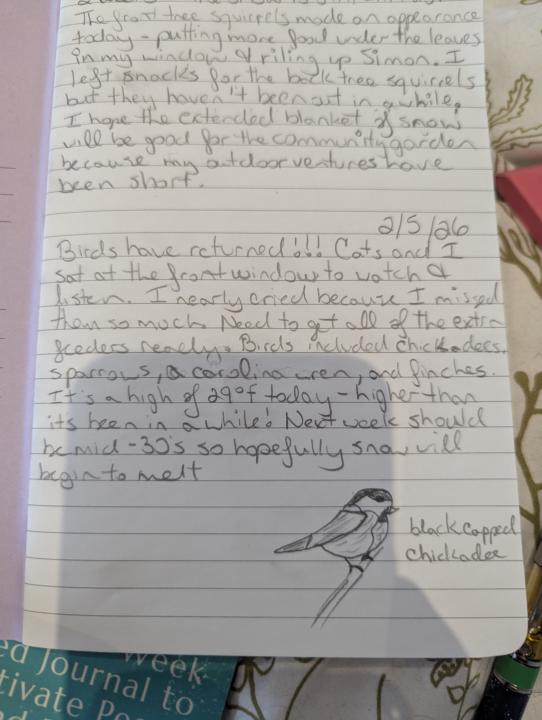 The front tree squirrels made an appearance
today - putting more food under the leaves
in my window & riling up Simon. I
left snacks for the back tree squirrels
but they haven't been out in a while.
I hope the extended blanket of snow
will be good for the community garden
because my outdoor ventures have
been short.
2/5/26
Birds have returned!!! Cats and I
sat at the front window to watch &
listen. I nearly cried because I missed
them so much. Need to get all of the extra
feeders ready. Birds included chickadees,
sparrows, a carolina wren, and finches.
It's a high of 29°f today - higher than
its been in a while! Next week should
be mid-30's so hopefully snow will
begin to melt
black capped
chickadee
week
ed Journal to
tivate Po